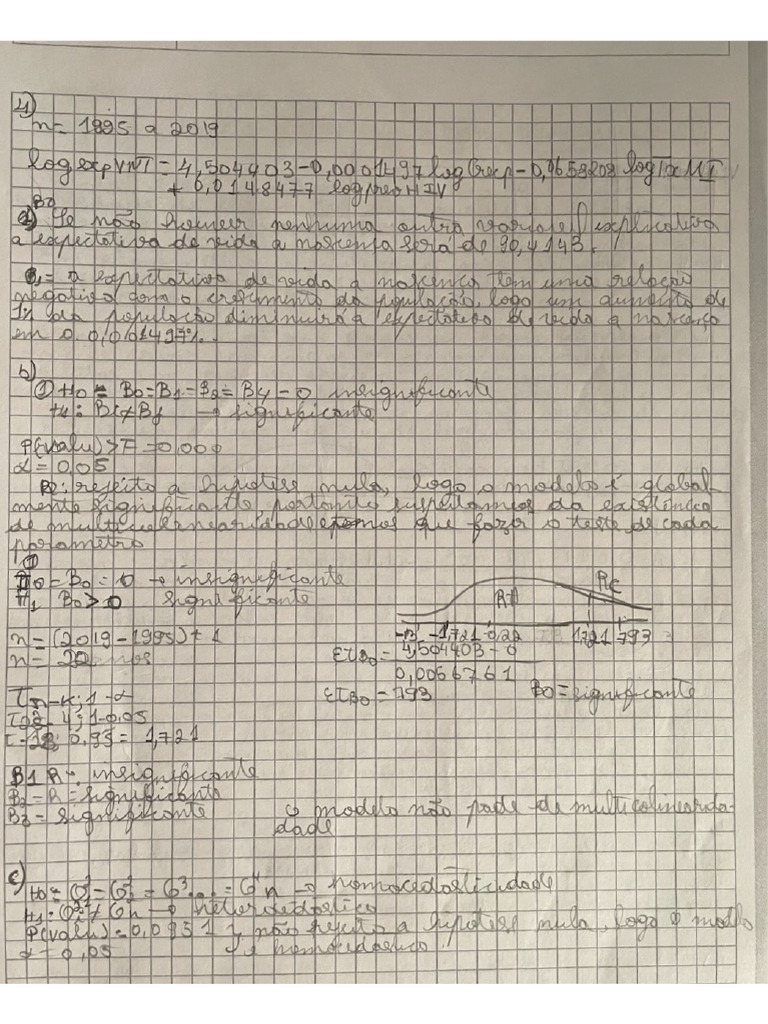 4)
n= 1995 a 2019
log expVNT = 4,504403-0,0001497 log Crecp - 0,0658208 log IxMI
+ 0,0148477 log prevHIV
B0
a) Se não houver nenhuma outra variavel explicativa
a expectativa de vida a nascensa será de 90,4143.
B1= a expectativa de vida a nascenca tem uma relação
negativa com o crescimento da população, logo um aumento de
1% da população diminuirá a expectativa de vida a nascença
em 0.0001497%.
b)
① H0 = B0=B1=B2=B4=0 insignificante
H1: Bi≠Bj → significante
P(valu)>F=0,000
α=0,05
R2: rejeito a hipotese nula, logo o modelo é global
mente significante, portanto suspeitamos da existência
de multicolinearidade temos que fazer o teste de cada
parametro
H0 = B0 = 0 → insignificante
H1 B0 > 0 significante
RA RC
n=(2019-1995)+1
-1,721 0,22 1,721 793
n= anos
ETB0 = 4,504403-0
0,0056761
Tn-k; 1-α
ETB0 = 793 B0=significante
4; 1-0.05
0,95= 1,721
B1 R= insignificante
B2=R=significante
B3= significante o modelo não pade de multicolinearida-
dade
c)
H0= σ²= σ²= σ³...= σ n → homocedasticidade
H1= σ² ≠ σn → heterocedastico
P(valu)=0,0951 } não rejeito a hipotese nula, logo o modelo
α=0,05 é homocedastico.